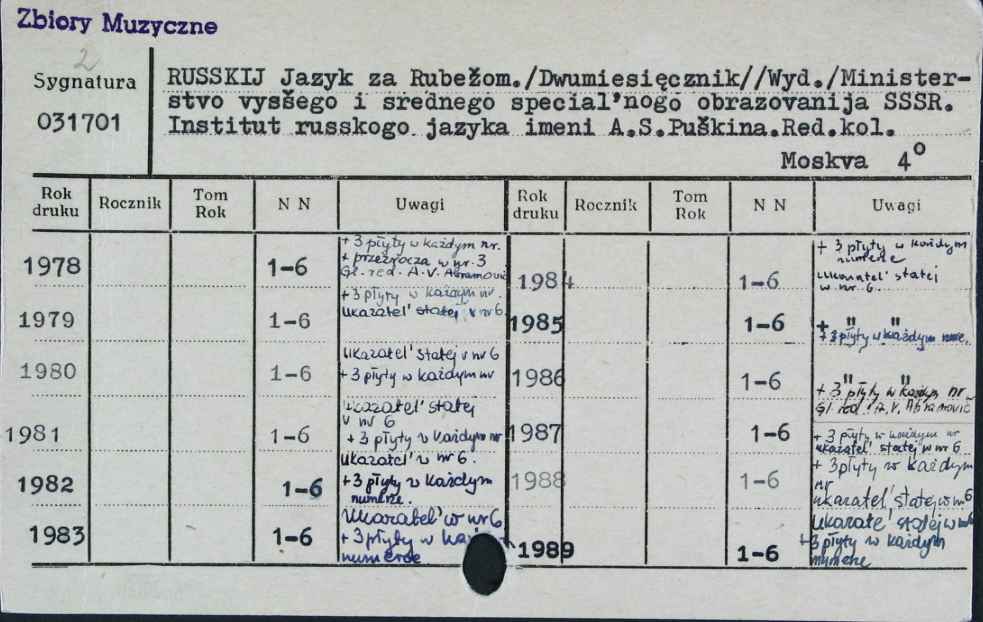 Zbiory Muzyczne
2
Sygnatura
031701
RUSSKIJ Jazyk za Rubežom./Dwumiesięcznik//Wyd./Minister-
stvo vysšego i srednego special'nogo obrazovanija SSSR.
Institut russkogo jazyka imeni A.S.Puškina.Red.kol.
Moskva 4°
Rok druku Rocznik Tom Rok N N Uwagi Rok druku Rocznik Tom Rok N N Uwagi
+ 3 płyty w każdym nr.
1978 1-6 + przeźrocza w nr. 3
Gl. red. A.V. Abramovič
+ 3 płyty w każdym nr.
1979 1-6 ukazatel' statej v nr 6
ukazatel' statej v nr 6
1980 1-6 + 3 płyty w każdym nr
ukazatel' statej
v nr 6
1981 1-6 + 3 płyty w każdym nr
ukazatel' v nr 6.
1982 1-6 + 3 płyty w każdym
numerze.
Ukazatel' w nr 6
1983 1-6 + 3 płyty w
numerze
+ 3 płyty w każdym
numerze
1984 1-6 statej
w nr 6.
1985 1-6 + " "
+ 3 płyty w każdym
1986 1-6 " "
+ 3 płyty w każdym nr
Gl. red. A.V. Abramovič
1987 1-6 + 3 płyty w każdym nr
ukazatel' statej w nr 6
1988 1-6 + 3 płyty w każdym
nr
ukazatel' statej w nr 6
statej w nr 6
1989 1-6 + 3 płyty w każdym
numerze